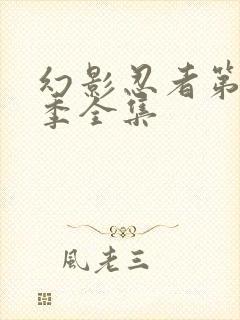 幻影忍者第
季全集
風老三